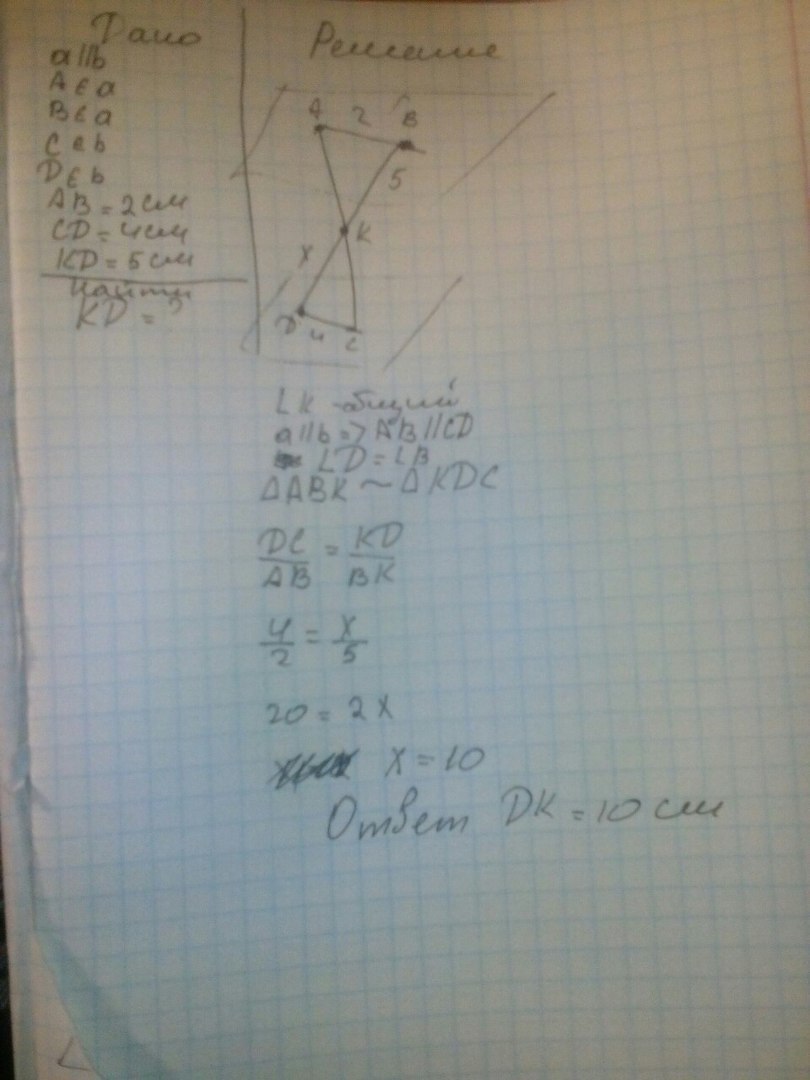 Дано
a||b
A є a
B є a
C є b
D є b
AB = 2 см
CD = 4 см
KD = 5 см
Найти
KD = ?
Решение
A 2 B
5
K
X
D 4 C
∠K - общий
a||b => AB||CD
∠D = ∠B
ΔABK ~ ΔKDC
DC/AB = KD/BK
4/2 = X/5
20 = 2X
X = 10
Ответ DK = 10 см